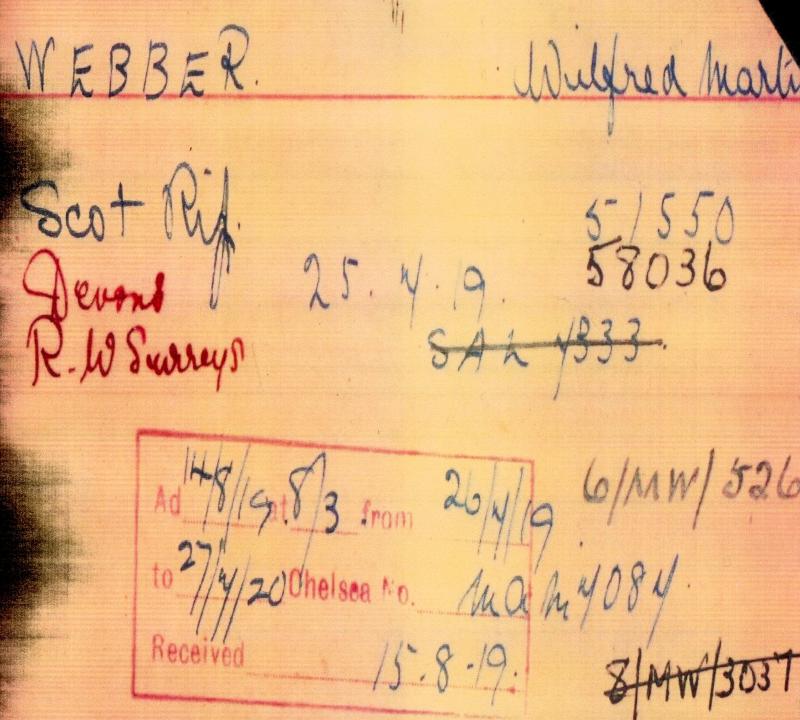 WEBBER. Wilfred Marti
Scot Rif. 51550
Devons 25.4.19. 58036
R.W Surreys SAL 4333.
Ad 14/8/19 at 8/3 from 26/4/19 6/MW/526
to 27/4/20 Chelsea No. 4084
Received 15.8.19. 8/MW/3037